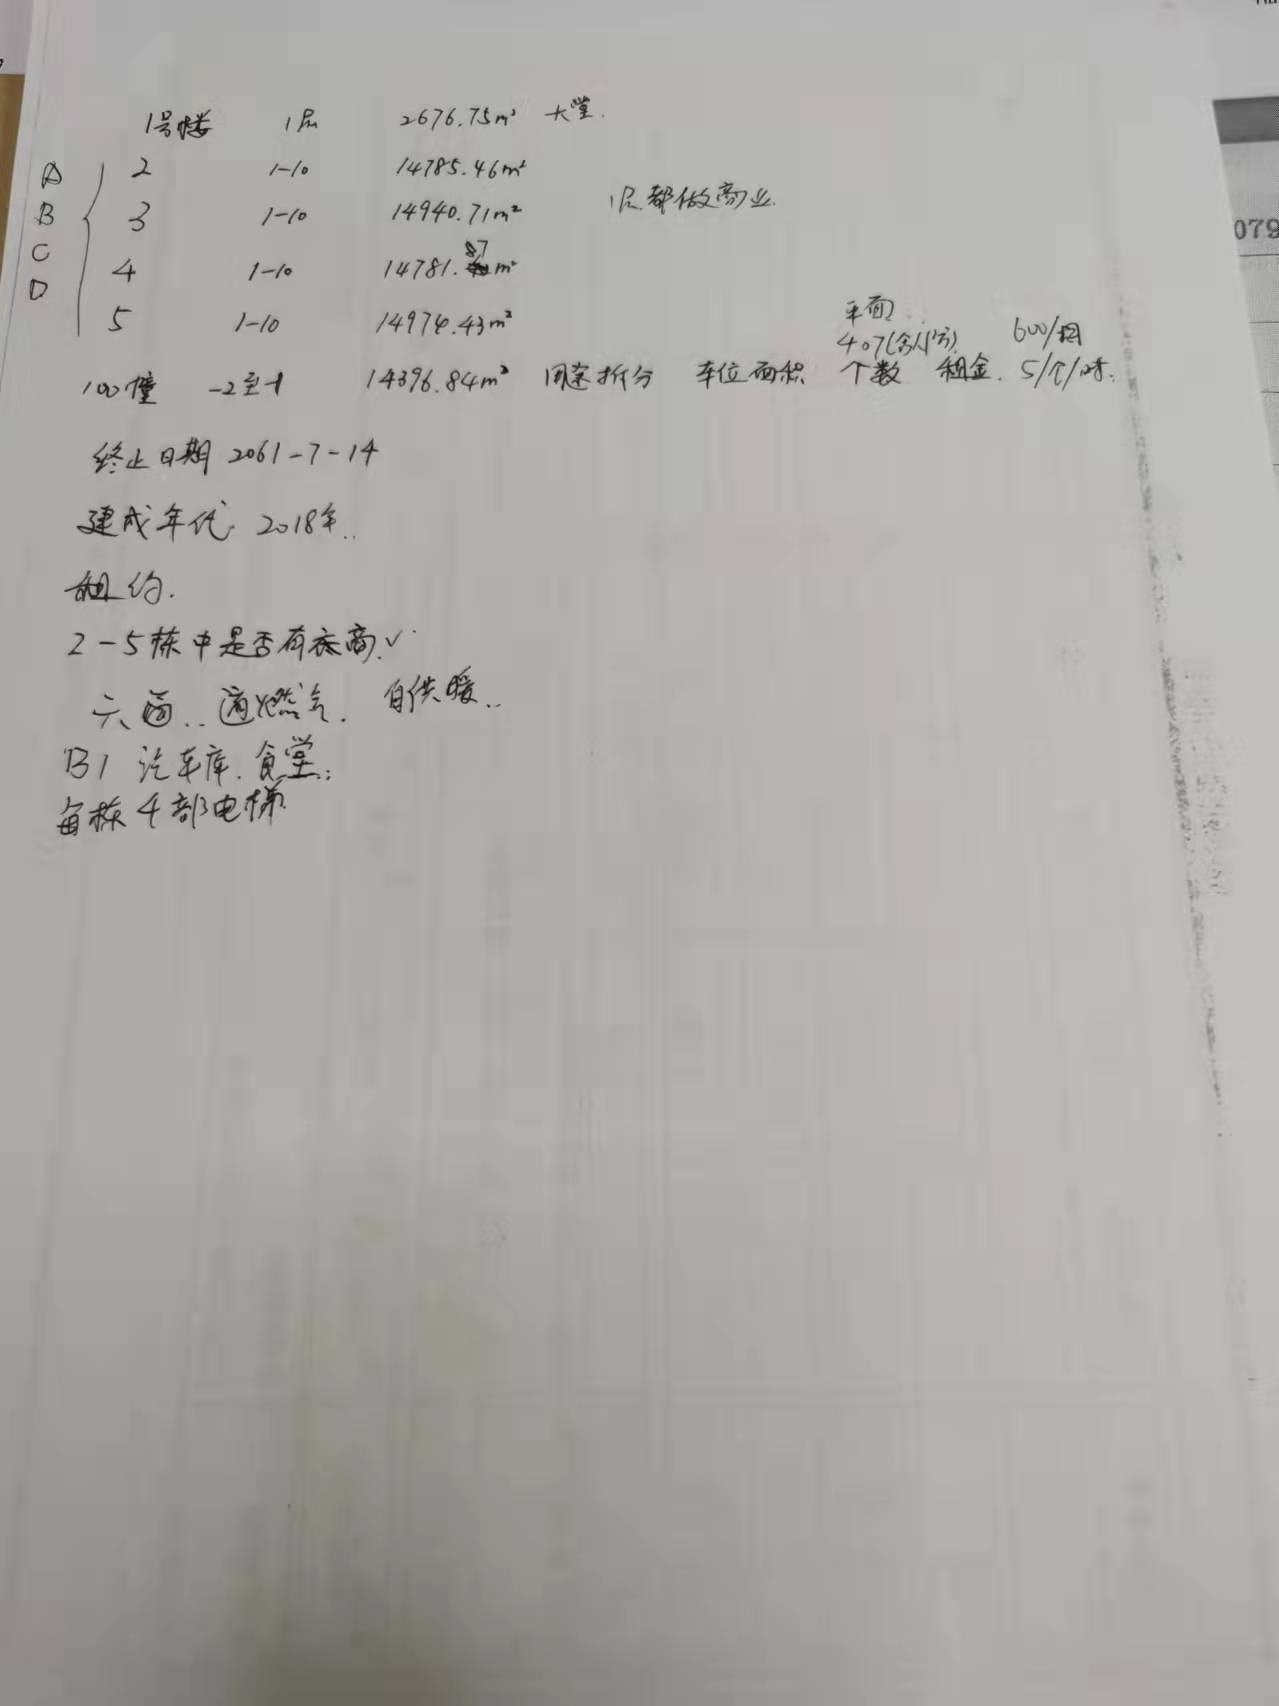 1号楼 1层 2676.75m² 大堂.
A 2 1-10 14785.46m²
B 3 1-10 14940.71m² 1层都做商业.
C 4 1-10 14781.87m²
D 5 1-10 14974.43m²
平面
407(含人防) 600/月
100幢 -2至-1 14396.84m² 用途拆分 车位面积 个数 租金. 5/个/时.
终止日期 2061-7-14
建成年代 2018年..
租约.
2-5栋中是否有底商.✓
六通.. 通燃气. 自供暖..
B1 汽车库.食堂.
每栋4部电梯
079